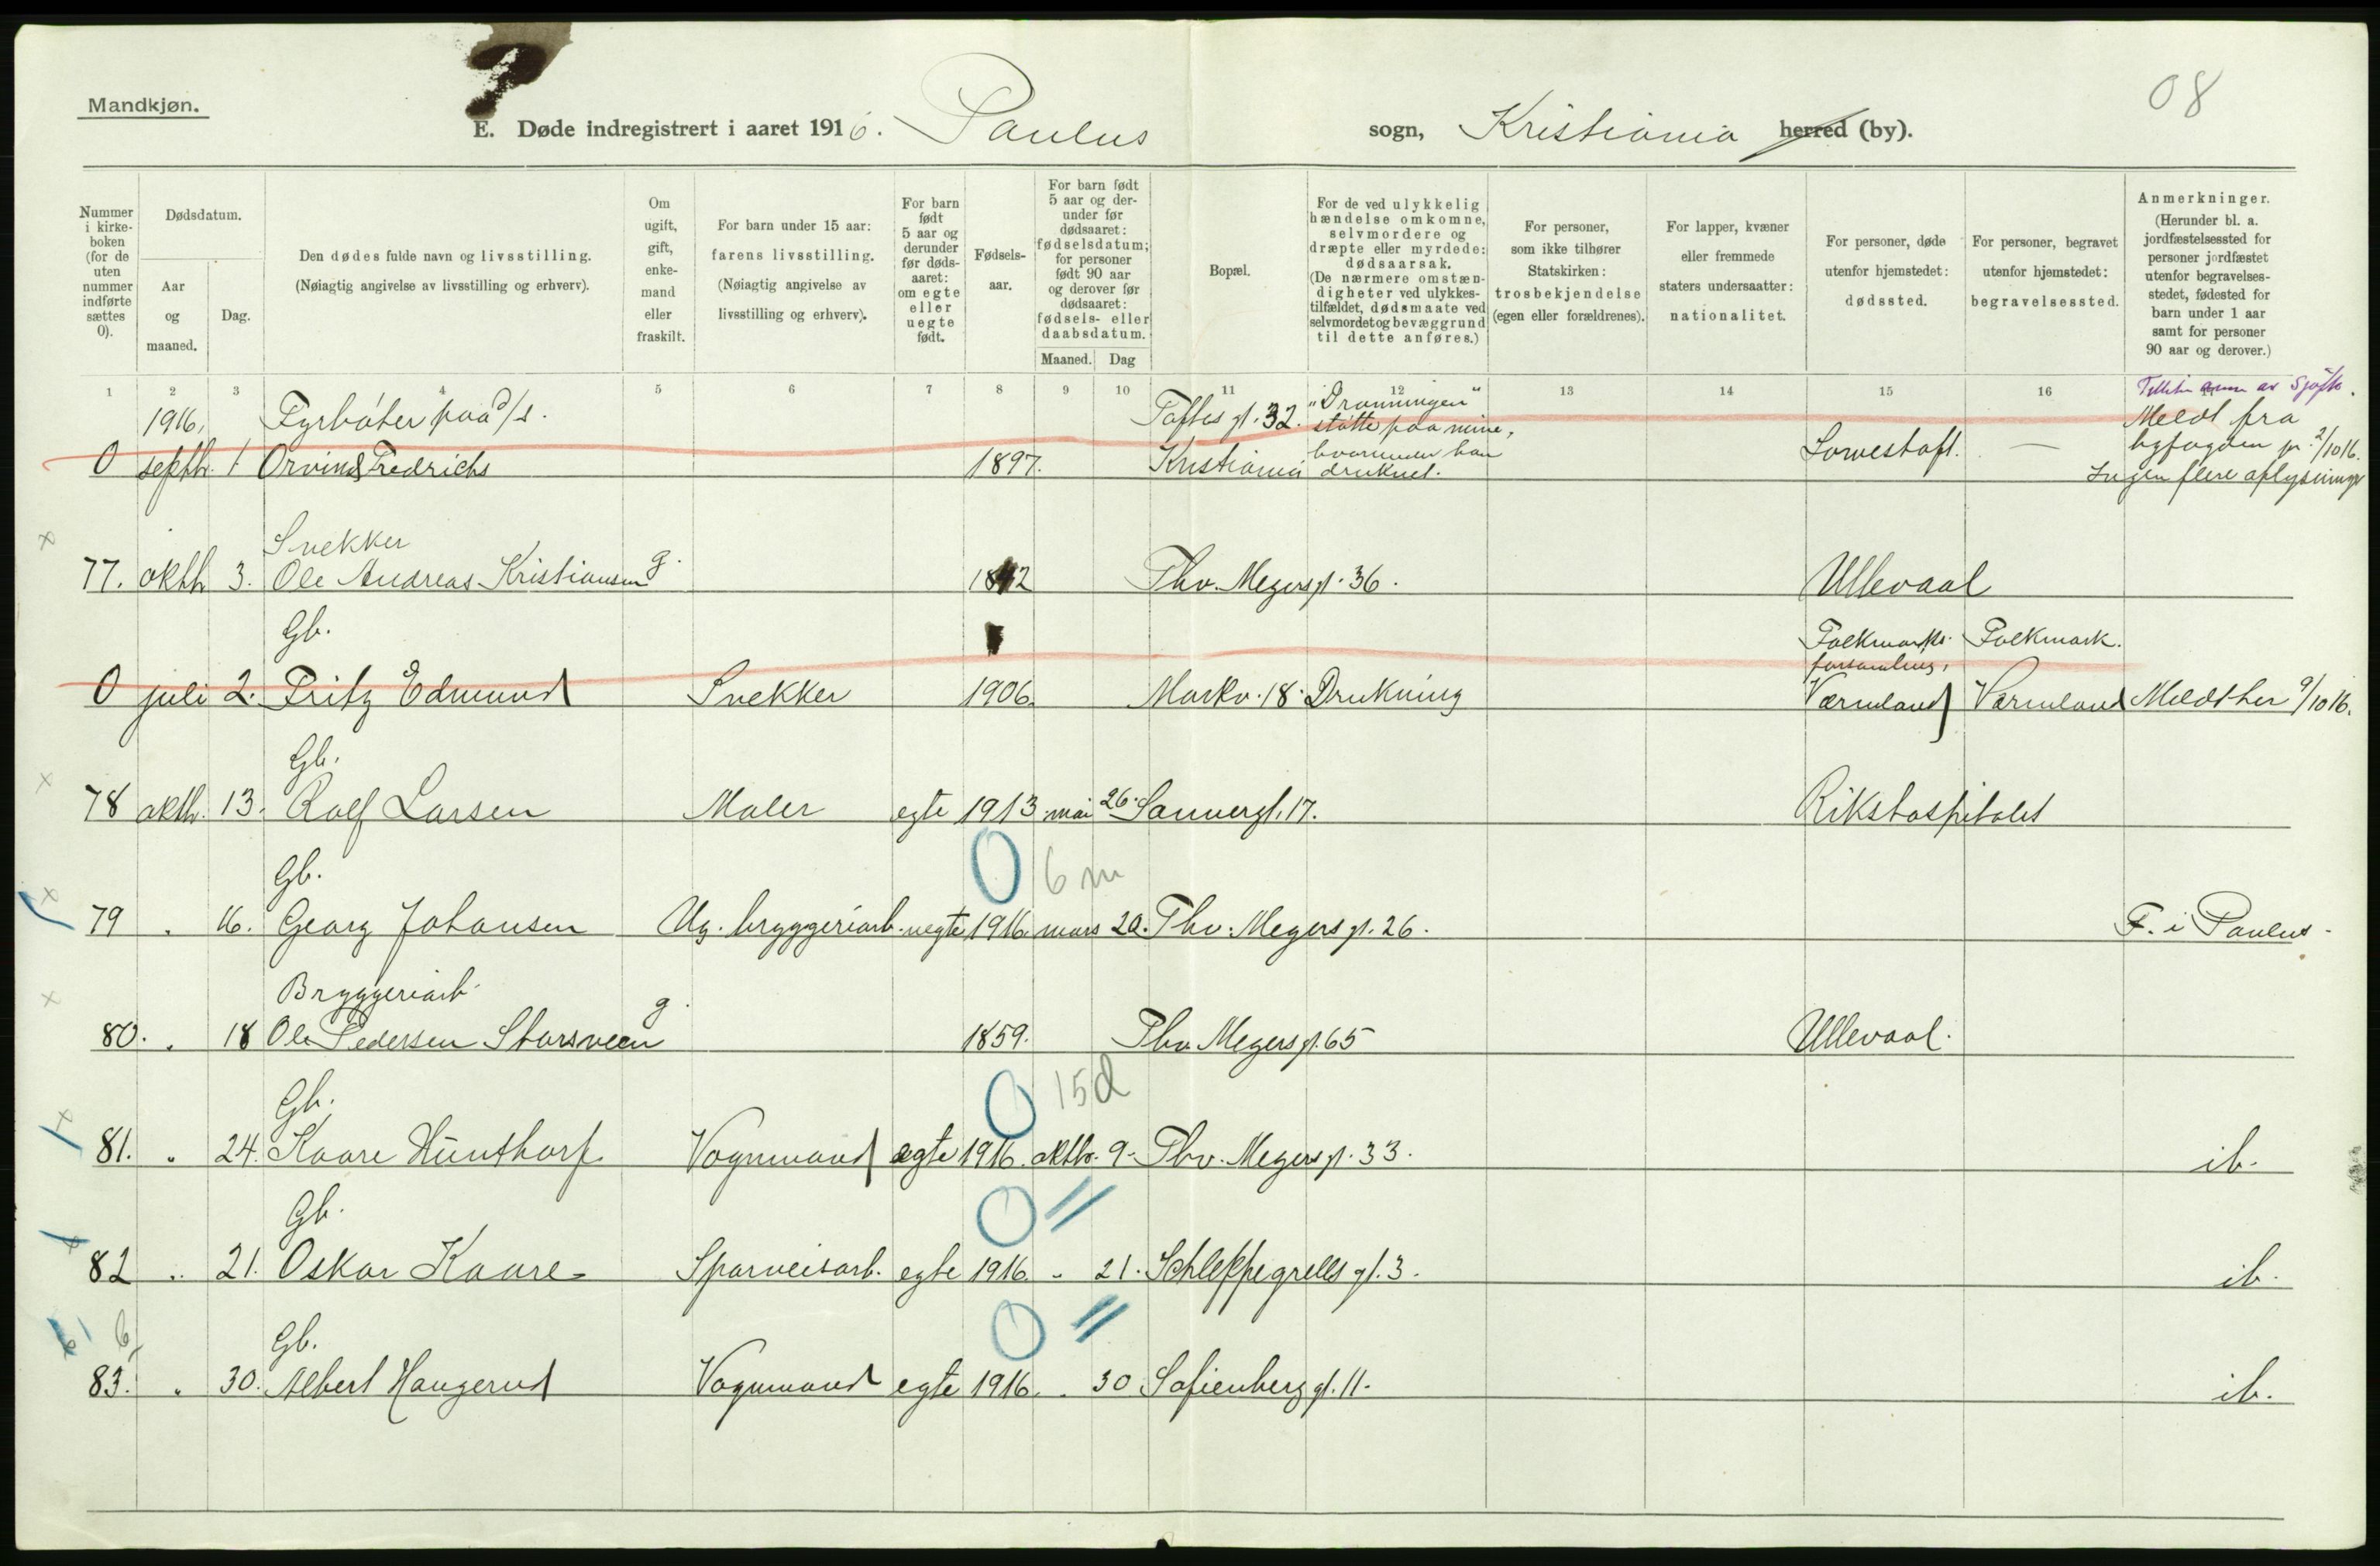 08
Mandkjøn.
E. Døde indregistrert i aaret 1916. Paulus sogn, Kristiania herred (by).
Nummer i kirkeboken (for de uten nummer indførte sættes 0).
Dødsdatum.
Aar og maaned.
Dag.
Den dødes fulde navn og livsstilling.
(Nøiagtig angivelse av livsstilling og erhverv).
Om ugift, gift, enkemand eller fraskilt.
For barn under 15 aar: farens livsstilling.
(Nøiagtig angivelse av livsstilling og erhverv).
For barn født 5 aar og derunder før dødsaaret: om egte eller uegte født.
Fødselsaar.
For barn født 5 aar og derunder før dødsaaret: fødselsdatum; for personer født 90 aar og derover før dødsaaret: fødsels- eller daabsdatum.
Maaned. Dag
Bopæl.
For de ved ulykkelig hændelse omkomne, selvmordere og dræpte eller myrdede: dødsaarsak.
(De nærmere omstændigheter ved ulykkestilfældet, dødsmaate ved selvmordet og bevæggrund til dette anføres.)
For personer, som ikke tilhører Statskirken: trosbekjendelse (egen eller forældrenes).
For lapper, kvæner eller fremmede staters undersaatter: nationalitet.
For personer, døde utenfor hjemstedet: dødssted.
For personer, begravet utenfor hjemstedet: begravelsessted.
Anmerkninger.
(Herunder bl. a. jordfæstelsessted for personer jordfæstet utenfor begravelsesstedet, fødested for barn under 1 aar samt for personer 90 aar og derover.)
1 2 3 4 5 6 7 8 9 10 11 12 13 14 15 16
1916, Fyrbøter paa d/s. Toftes gt. 32. "Dronningen" støtte paa mine, Meldt fra
0 septbr. 1 Orvind Fredrichs 1897. Kristiania hvorunder han druknet. Lowestoft. — byfogden pr. 2/10 16.
Ingen flere oplysninger
Snekker
77. oktb. 3. Ole Andreas Kristiansen g. 1842 Thv. Meyers gt. 36. Ullevaal
Gb. Folkmarks forsamling, Folkmark.
0 juli 2. Fritz Edmund Snekker 1906. Markv. 18. Drukning Værmland Værmland Meldt her 9/10 16.
Gb.
78 oktb. 13. Rolf Larsen Maler egte 1913 mai 26. Sannergt. 17. Rikshospitalet
Gb. 0 6 m
79 " 16. Georg Johansen Ug. bryggeriarb. uegte 1916 mars 20. Thv. Meyers gt. 26. F. i Paulus.
Bryggeriarb.
80. " 18 Ole Pedersen Storsveen g. 1859. Thv. Meyers gt. 65 Ullevaal.
Gb. 0 15 d
81. " 24. Kaare Hünthorf. Vognmand egte 1916. oktbr. 9. Thv. Meyers gt. 33. ib.
Gb. 0 "
82 " 21. Oskar Kaare Sporveisarb. egte 1916. " 21. Schleppegrells gt. 3. ib.
6 Gb. 0 "
83. " 30. Albert Haugerud Vognmand egte 1916. " 30 Sofienberg gt. 11. ib.